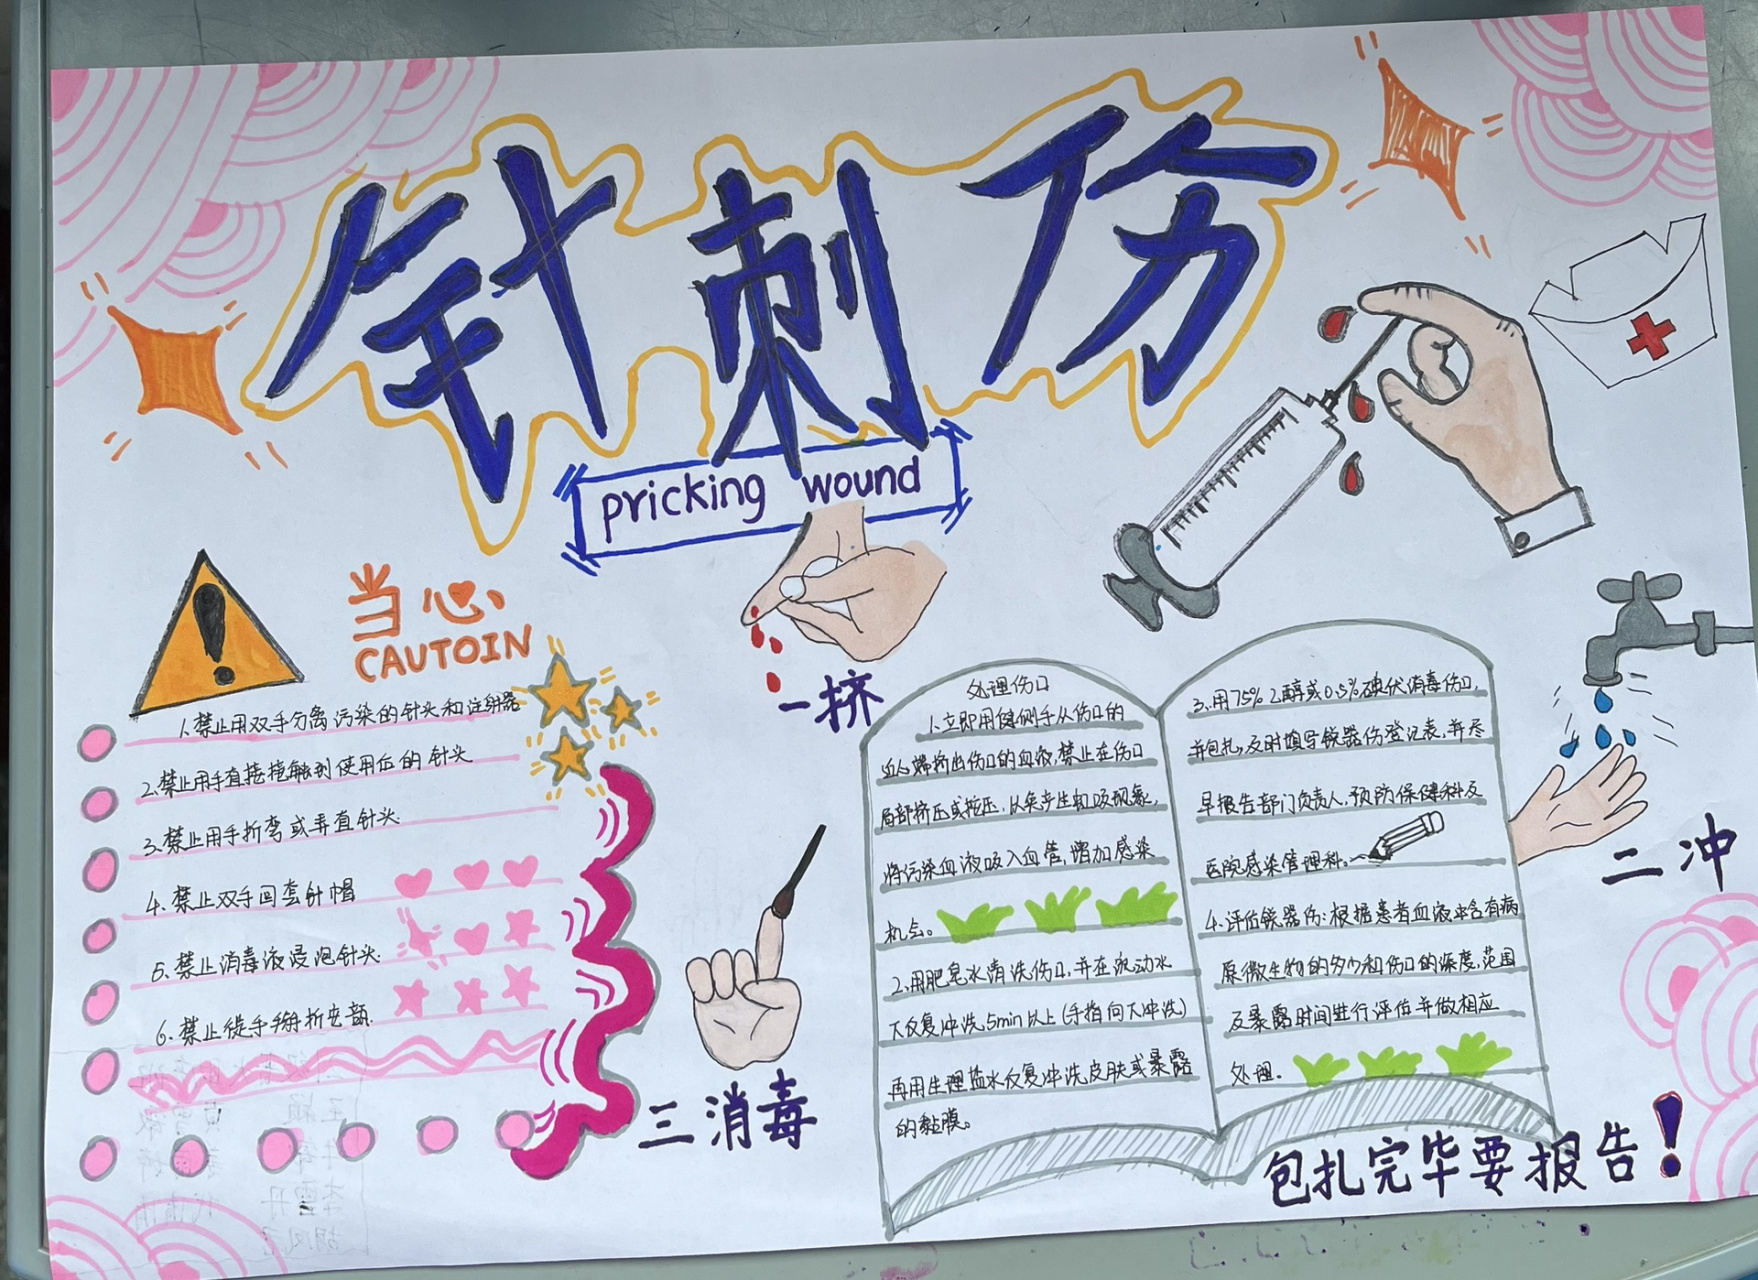 针刺伤
pricking wound
当心
CAUTOIN
1.禁止用双手分离污染的针头和注射器
2.禁止用手直接接触到使用后的针头
3.禁止用手折弯或弄直针头
4.禁止双手回套针帽
5.禁止消毒液浸泡针头.
6.禁止徒手掰折安瓿.
一挤
二冲
三消毒
处理伤口
1.立即用健侧手从伤口的
近心端挤出伤口的血液,禁止在伤口
局部挤压或按压,以免产生虹吸现象,
将污染血液吸入血管,增加感染
机会。
2.用肥皂水清洗伤口,并在流动水
下反复冲洗5min以上(手指向下冲洗)
再用生理盐水反复冲洗皮肤或暴露
的黏膜。
3.用75%乙醇或0.5%碘伏消毒伤口,
并包扎,及时填写锐器伤登记表,并尽
早报告部门负责人,预防保健科及
医院感染管理科.
4.评估锐器伤:根据患者血液中含有病
原微生物的多少和伤口的深度,范围
及暴露时间进行评估并做相应
处理.
包扎完毕要报告!